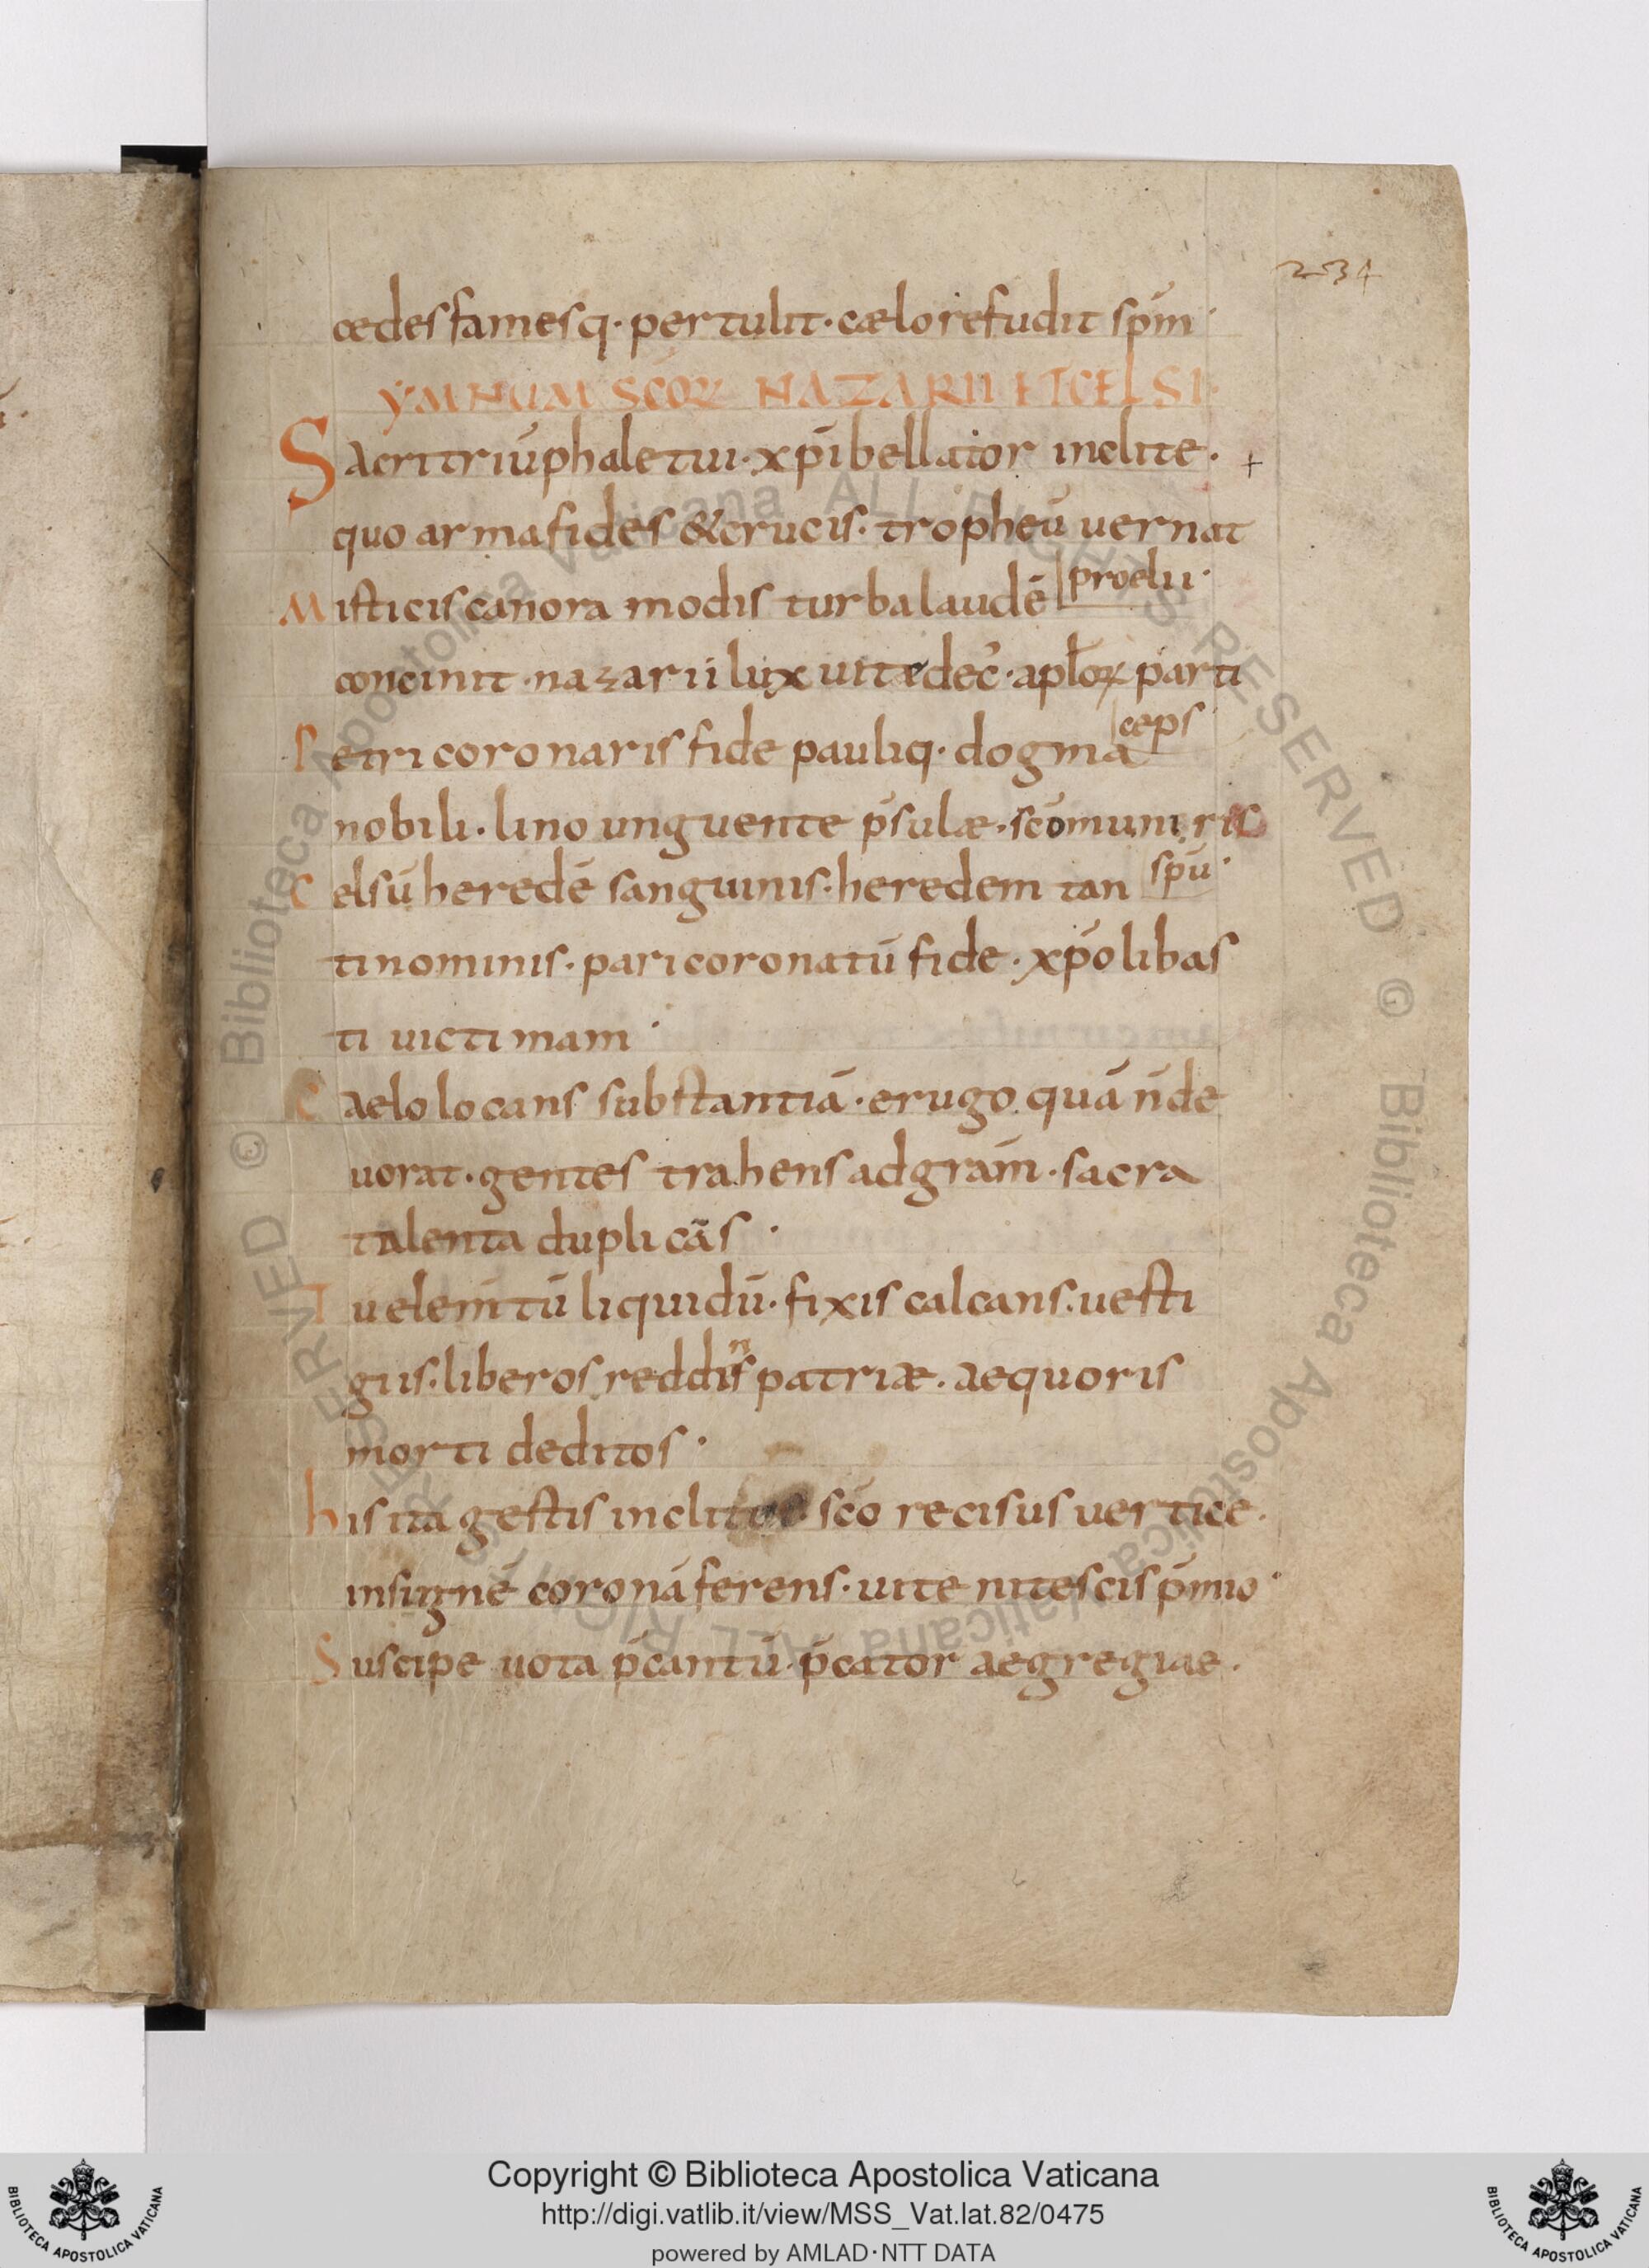 234
cedesfamesq· pertulit· cælo refudit sp̄m·
YMNUM SC̄OꝜ NAZARII ETCELSI·
Sacri triūphale tui· xp̄i bellator inclite· +
quo arma fides & crucis· tropheū uernat
proelii·
Misticis canora modis turba laudē
concinit· nazarii lux uitæ dec᾽· apl̄oꝝ parti
ceps·
Petri coronaris fide pauliq· dogma
nobili· lino unguente p̄sulæ· sc̄o muniris
sp̄u·
Celsū heredē sanguinis· heredem tan
ti nominis· pari coronatū fide· xp̄o libas
ti uictimam·
Caelo locans substantiā· erugo quā n̄ de
uorat· gentes trahens ad gr̄am· sacra
talenta duplicās·
Tu elem̄tū liquidū· fixis calcans· uesti
n
giis· liberos reddis patriæ· aequoris
morti deditos·
his ita gestis inclitus· sc̄o recisus uertice·
insignē coronā ferens· uite nitescis p̄mio·
Suscipe uota p̄cantū· p̄cator aegregiae·
Copyright © Biblioteca Apostolica Vaticana
http://digi.vatlib.it/view/MSS_Vat.lat.82/0475
powered by AMLAD·NTT DATA
BIBLIOTECA APOSTOLICA VATICANA
BIBLIOTECA APOSTOLICA VATICANA
© Biblioteca Apostolica Vaticana ALL RIGHTS RESERVED © Biblioteca Apostolica Vaticana ALL RIGHTS RESERVED